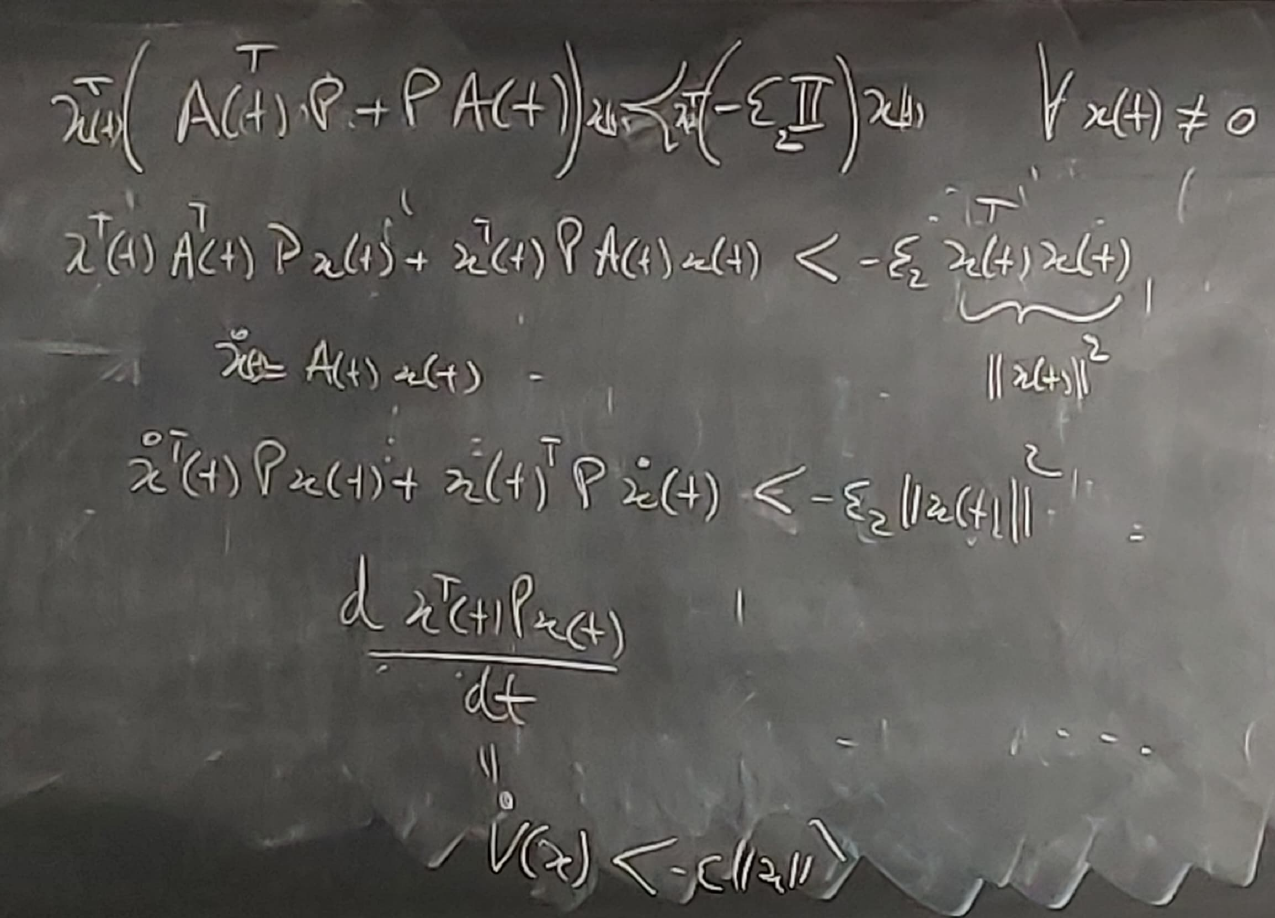 xᵀ(t)( A(t)ᵀP + P A(t) )x(t) < xᵀ(-ε₂ 𝕀)x(t) ∀ x(t) ≠ 0
xᵀ(t) Aᵀ(t) P x(t) + xᵀ(t) P A(t) x(t) < -ε₂ xᵀ(t) x(t)
ẋ(t) = A(t) x(t) ‖x(t)‖²
ẋᵀ(t) P x(t) + x(t)ᵀ P ẋ(t) < -ε₂ ‖x(t)‖²
d xᵀ(t) P x(t)
dt
=
V̇(x) < -c‖x‖